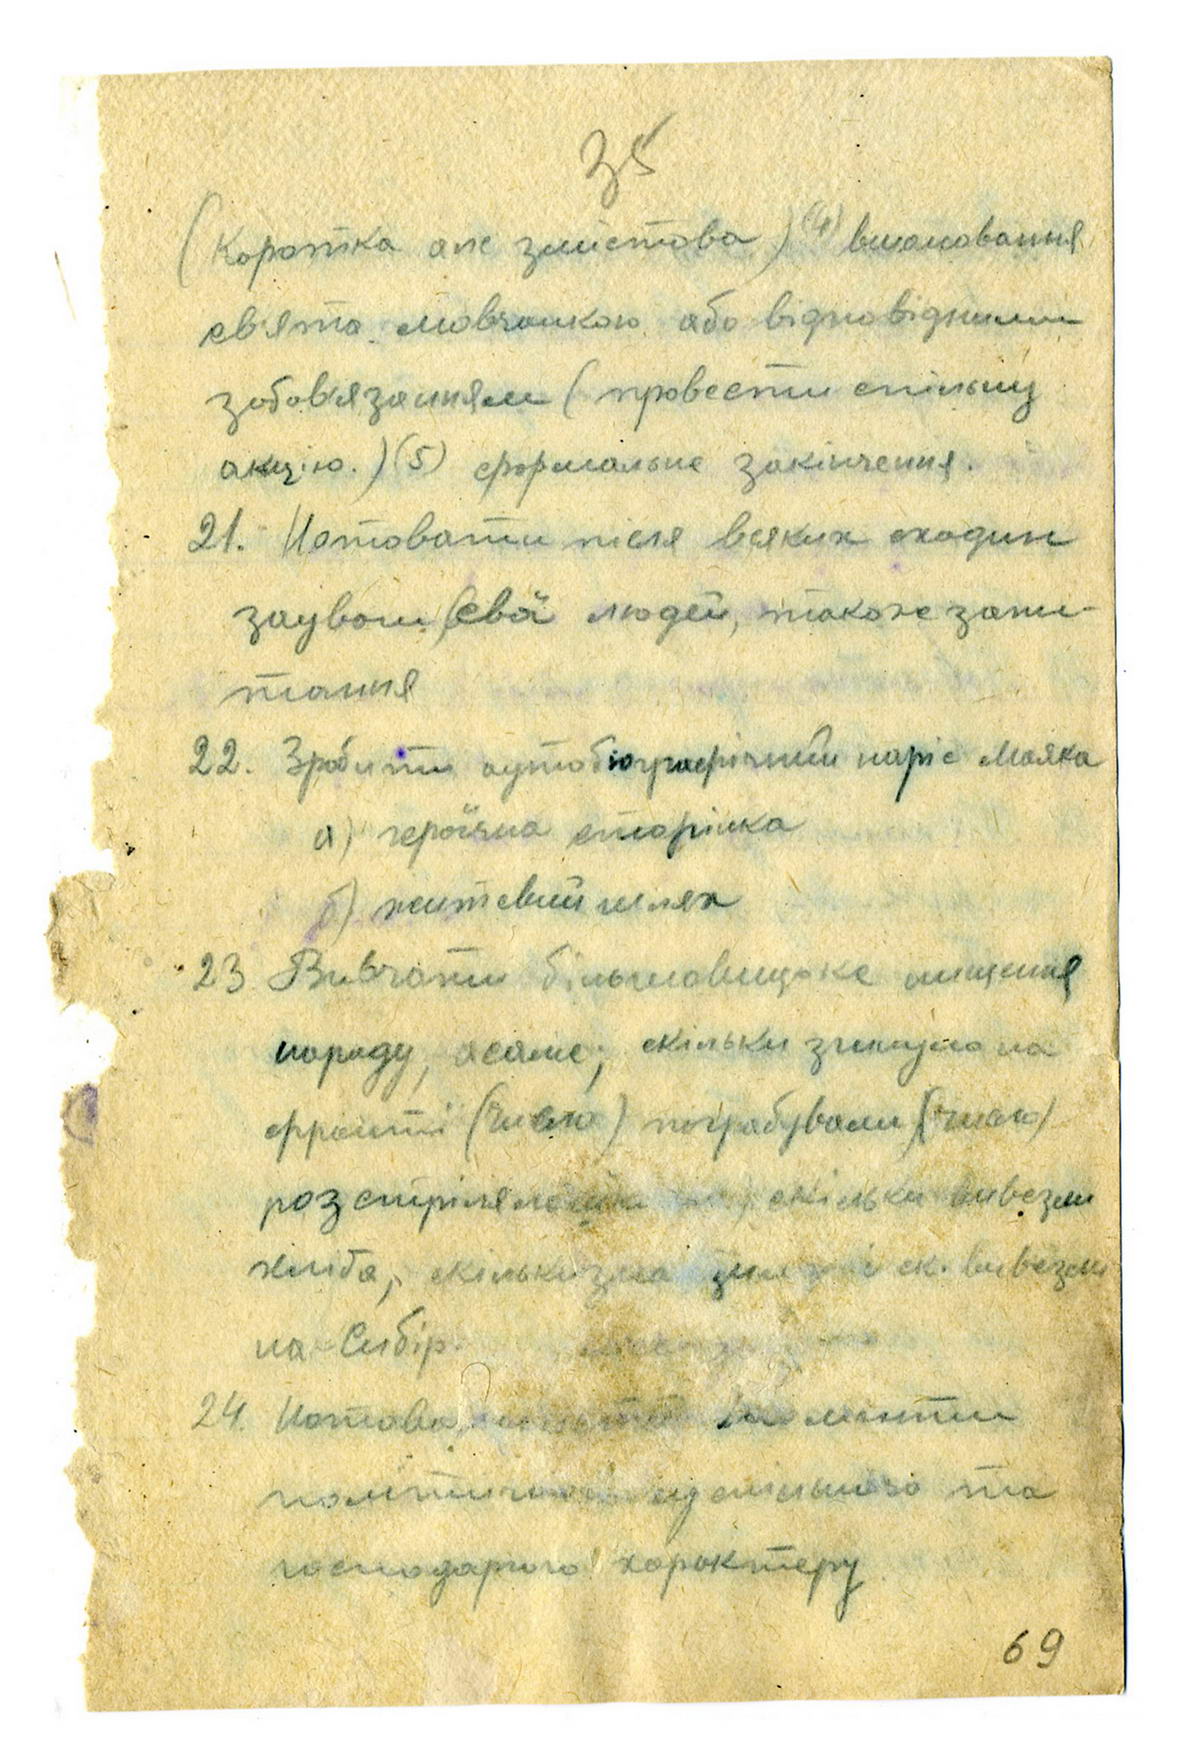 35
(коротка але змістова) (4) вшановання
свята мовчанкою або відповідними
зобов'язанням (провести спільну
акцію.) (5) формальне закінчення.
21. Нотовати після всяких сходин
зауваги свої людей, також запи-
тання
22. Зробити аутобіографічний наріс Маяка
а) героїчна сторінка
б) життєвий шлях
23 Вивчати більшовицьке нищення
народу, а саме; скільки згинуло на
фронті (число) пограбували (число)
розстріляли скільки вивезли
хліба, скільки і ск. вивезли
на Сибір.
24. моменти
політичного суспільного та
господарчого характеру
69